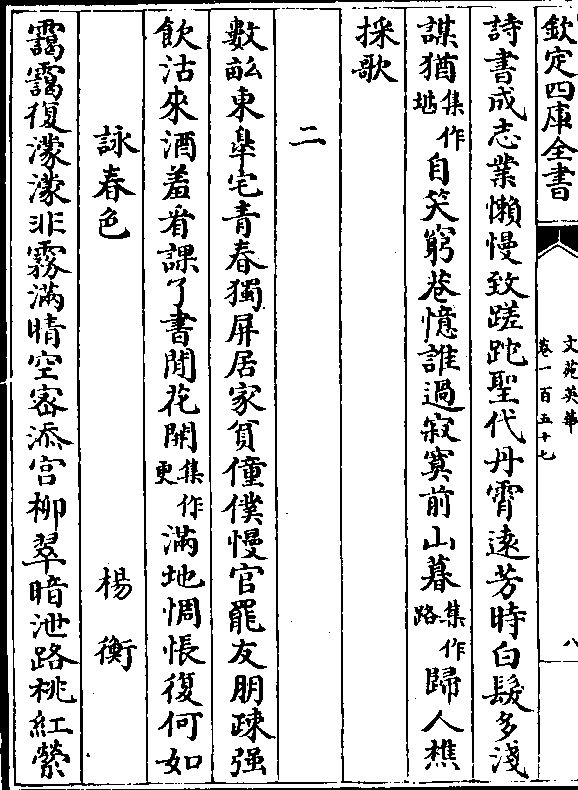 欽定四庫全書
文苑英華
卷一百五十七
八
詩書成志業懶慢致蹉跎聖代丹霄遠芳時白髮多淺
謀猶集作尯自笑窮巷憶誰過寂寞前山暮集作路歸人樵
採歌
二
數畝東臯宅青春獨屏居家貧僮僕慢官罷友朋踈强
飲沽來酒羞看課了書閒花開集作更滿地惆悵復何如
詠春色 楊衡
靄靄復濛濛非霧滿晴空密添宮柳翠暗泄路桃紅縈